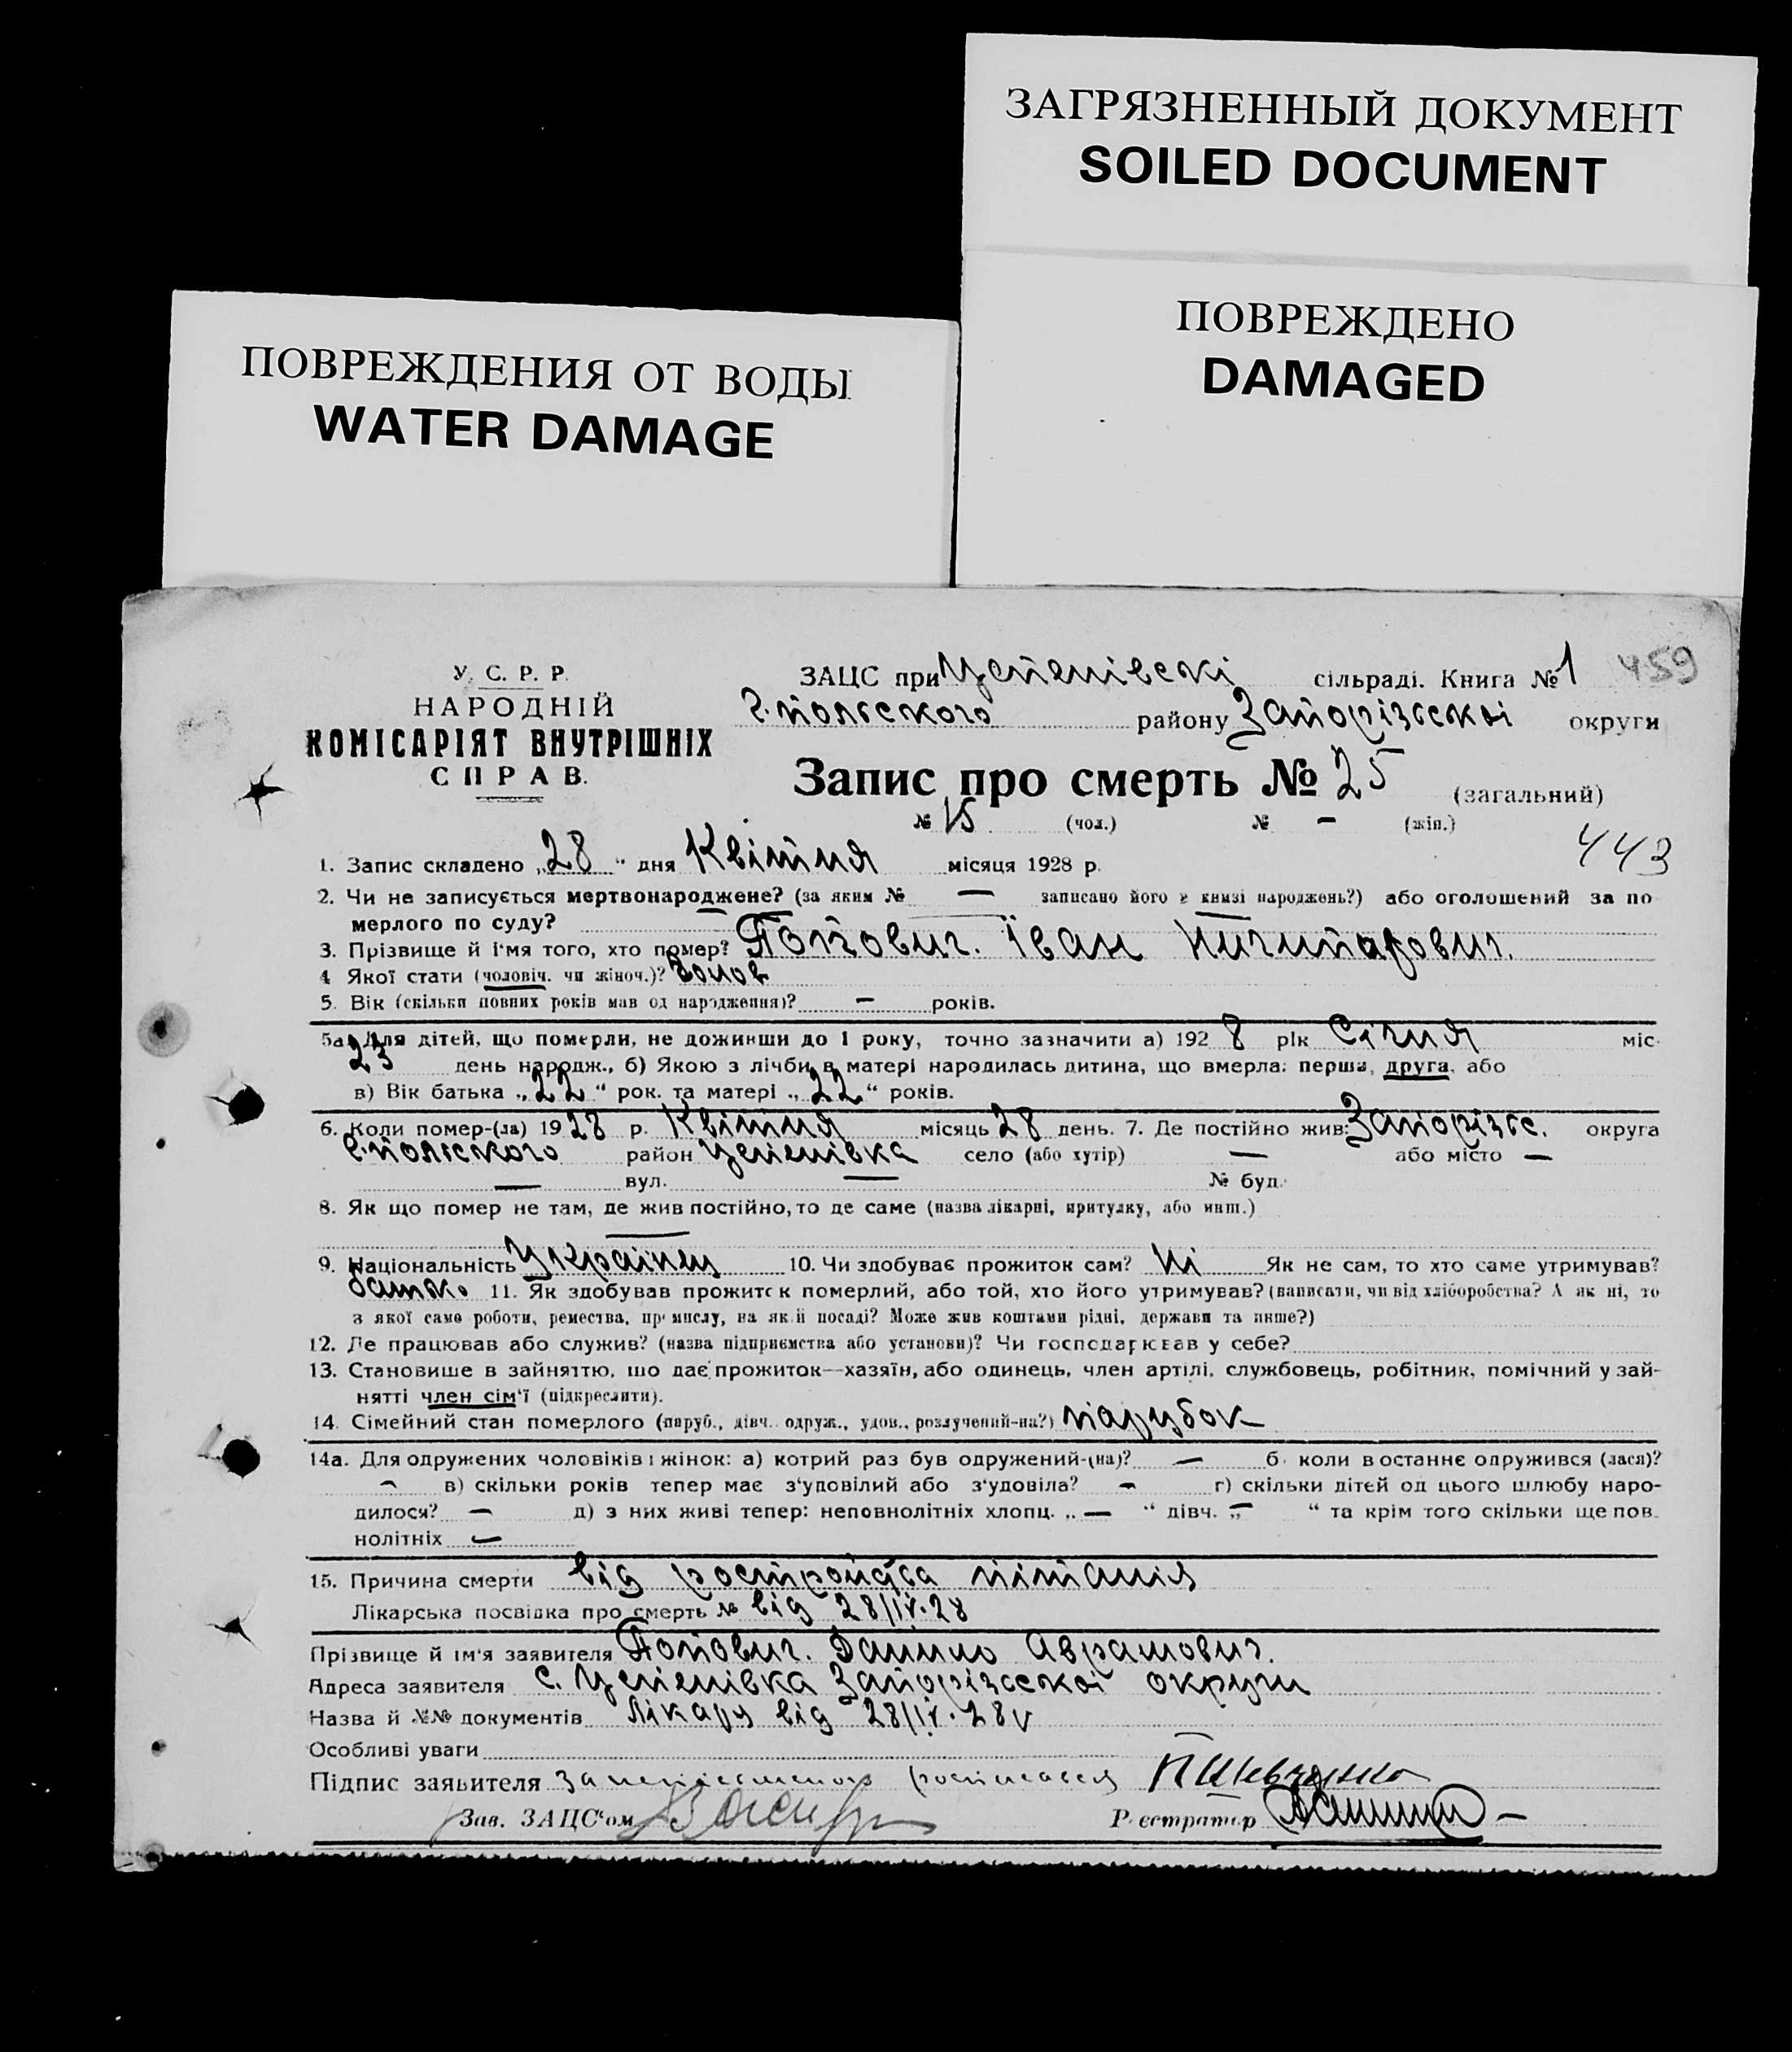 ЗАГРЯЗНЕННЫЙ ДОКУМЕНТ
SOILED DOCUMENT
ПОВРЕЖДЕНО
DAMAGED
ПОВРЕЖДЕНИЯ ОТ ВОДЫ
WATER DAMAGE
У. С. Р. Р.
НАРОДНІЙ
КОМІСАРІЯТ ВНУТРІШНІХ
СПРАВ.
ЗАЦС при Цепенівскі сільраді. Книга № 1 459
г.польского району Запорізської округи
Запис про смерть № 25 (загальний)
№ 15 (чол.) № — (жін.)
443
1. Запис складено „28“ дня Квітня місяця 1928 р.
2. Чи не записується мертвонароджене? (за яким № — записано його в книзі народжень?) або оголошений за по
мерлого по суду? —
3. Прізвище й ім'я того, хто помер? Попович. Іван Ничипарович.
4 Якої стати (чоловіч. чи жіноч.)?
5. Вік (скільки повних років мав од народження)? — років.
5а. Для дітей, що померли, не доживши до 1 року, точно зазначити а) 1928 рік Січня міс.
23 день народж., б) Якою з лічби в матері народилась дитина, що вмерла: перша, друга, або
в) Вік батька „22“ рок. та матері „22“ років.
6. Коли помер-(ла) 1928 р. Квітня місяць 28 день. 7. Де постійно жив: Запорізьс. округа
г.польского район Цепенівка село (або хутір) — або місто —
— вул. — № буд.
8. Як що помер не там, де жив постійно, то де саме (назва лікарні, притулку, або инш.)
—
9. Національність Українец 10. Чи здобуває прожиток сам? Ні Як не сам, то хто саме утримував?
батько 11. Як здобував прожиток померлий, або той, хто його утримував? (написати, чи від хліборобства? А як ні, то
з якої саме роботи, ремества, промислу, на якій посаді? Може жив коштами рідні, держави та инше?)
12. Де працював або служив? (назва підприємства або установи)? Чи господарював у себе?
13. Становище в зайняттю, що дає прожиток—хазяїн, або одинець, член артілі, службовець, робітник, помічний у зай-
нятті член сім'ї (підкреслити).
14. Сімейний стан померлого (паруб., дівч. одруж., удов., розлучений-на?) парубок
14а. Для одружених чоловіків і жінок: а) котрий раз був одружений-(на)? — б. коли в останнє одружився (лася)?
— в) скільки років тепер має з'уповілий або з'удовіла? — г) скільки дітей од цього шлюбу наро-
дилося? — д) з них живі тепер: неповнолітніх хлопц. „—“ дівч. „—“ та крім того скільки ще пов.
нолітніх —
15. Причина смерти від ростройства пітанія
Лікарська посвідка про смерть № від 28/IV.28
Прізвище й ім'я заявителя Попович. Данило Аврамович.
Адреса заявителя с. Цепенівка Запорізської округи
Назва й №№ документів Лікаря від 28/IV.28 р
Особливі уваги
Підпис заявителя
Зав. ЗАЦС'ом Реєстратор